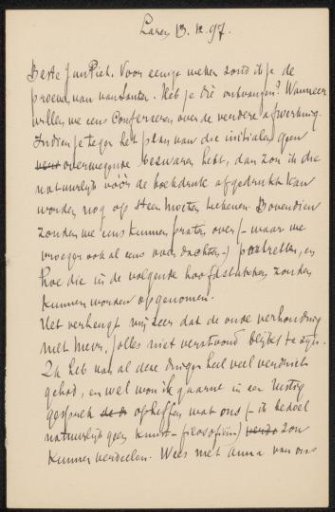 Laren 13. 12. 97.
Beste Jan Piet. Voor eenige weken zond ik je de
proeven van van Santen. Heb je die ontvangen? Wanneer
willen we eens confereeren over de verdere afwerking.
Indien je tegen het plan van die initialen geen
overwegende bezwaren hebt, dan zou ik die
natuurlijk vóór de boekdruk afgedrukt kan
worden nog op steen moeten teekenen. Bovendien
zouden we eens kunnen praten over (- waar we
vroeger ook al eens over dachten -) portretten, en
hoe die in de volgende hoofdstukken zouden
kunnen worden opgenomen.
Het verheugt mij zeer dat de oude verhouding
met Mevr. Jolles niet verstoord blijkt te zijn.
Ik heb van al deze dingen heel veel verdriet
gehad, en wel wou ik gaarne in een rustig
gesprek opheffen, wat ons (- ik bedoel
natuurlijk geen kunst-filosofiën) zou
kunnen verdeelen. Wees met Anna van ons